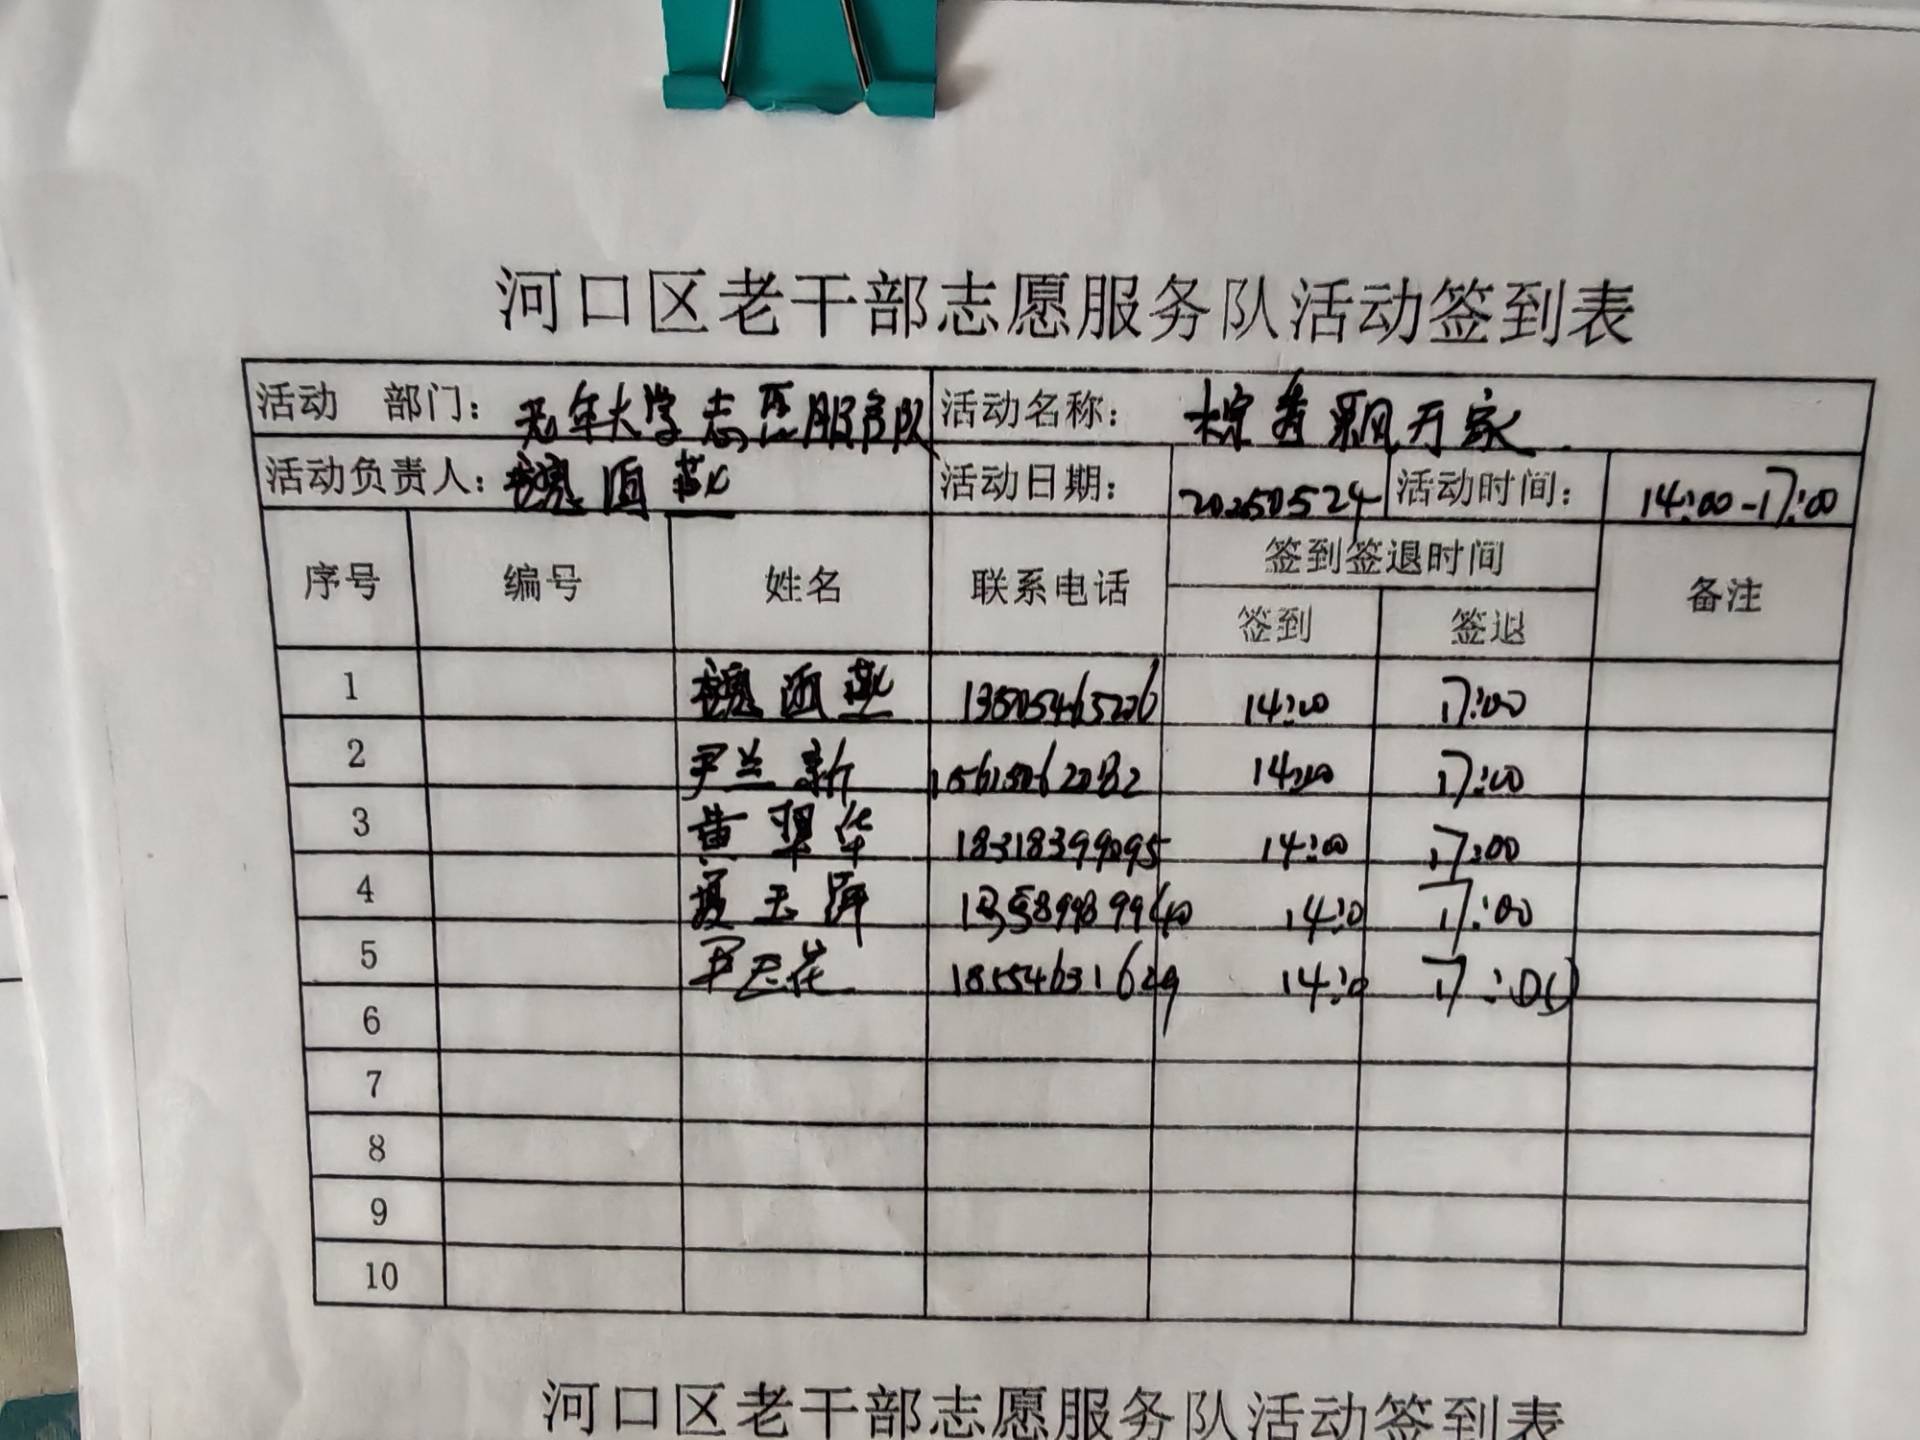 河口区老干部志愿服务队活动签到表
活动 部门：老年大学志愿服务队 活动名称：粽香飘万家
活动负责人：魏 燕 活动日期：20250524 活动时间：14:00-17:00
序号 编号 姓名 联系电话 签到签退时间 备注
签到 签退
1 魏 燕 14:00 17:00
2 尹兰新 14:00 17:00
3 黄翠华 18318399095 14:00 17:00
4 玉萍 14:0 17:00
5 花 18554631629 14:0 17:00
6
7
8
9
10
河口区老干部志愿服务队活动签到表